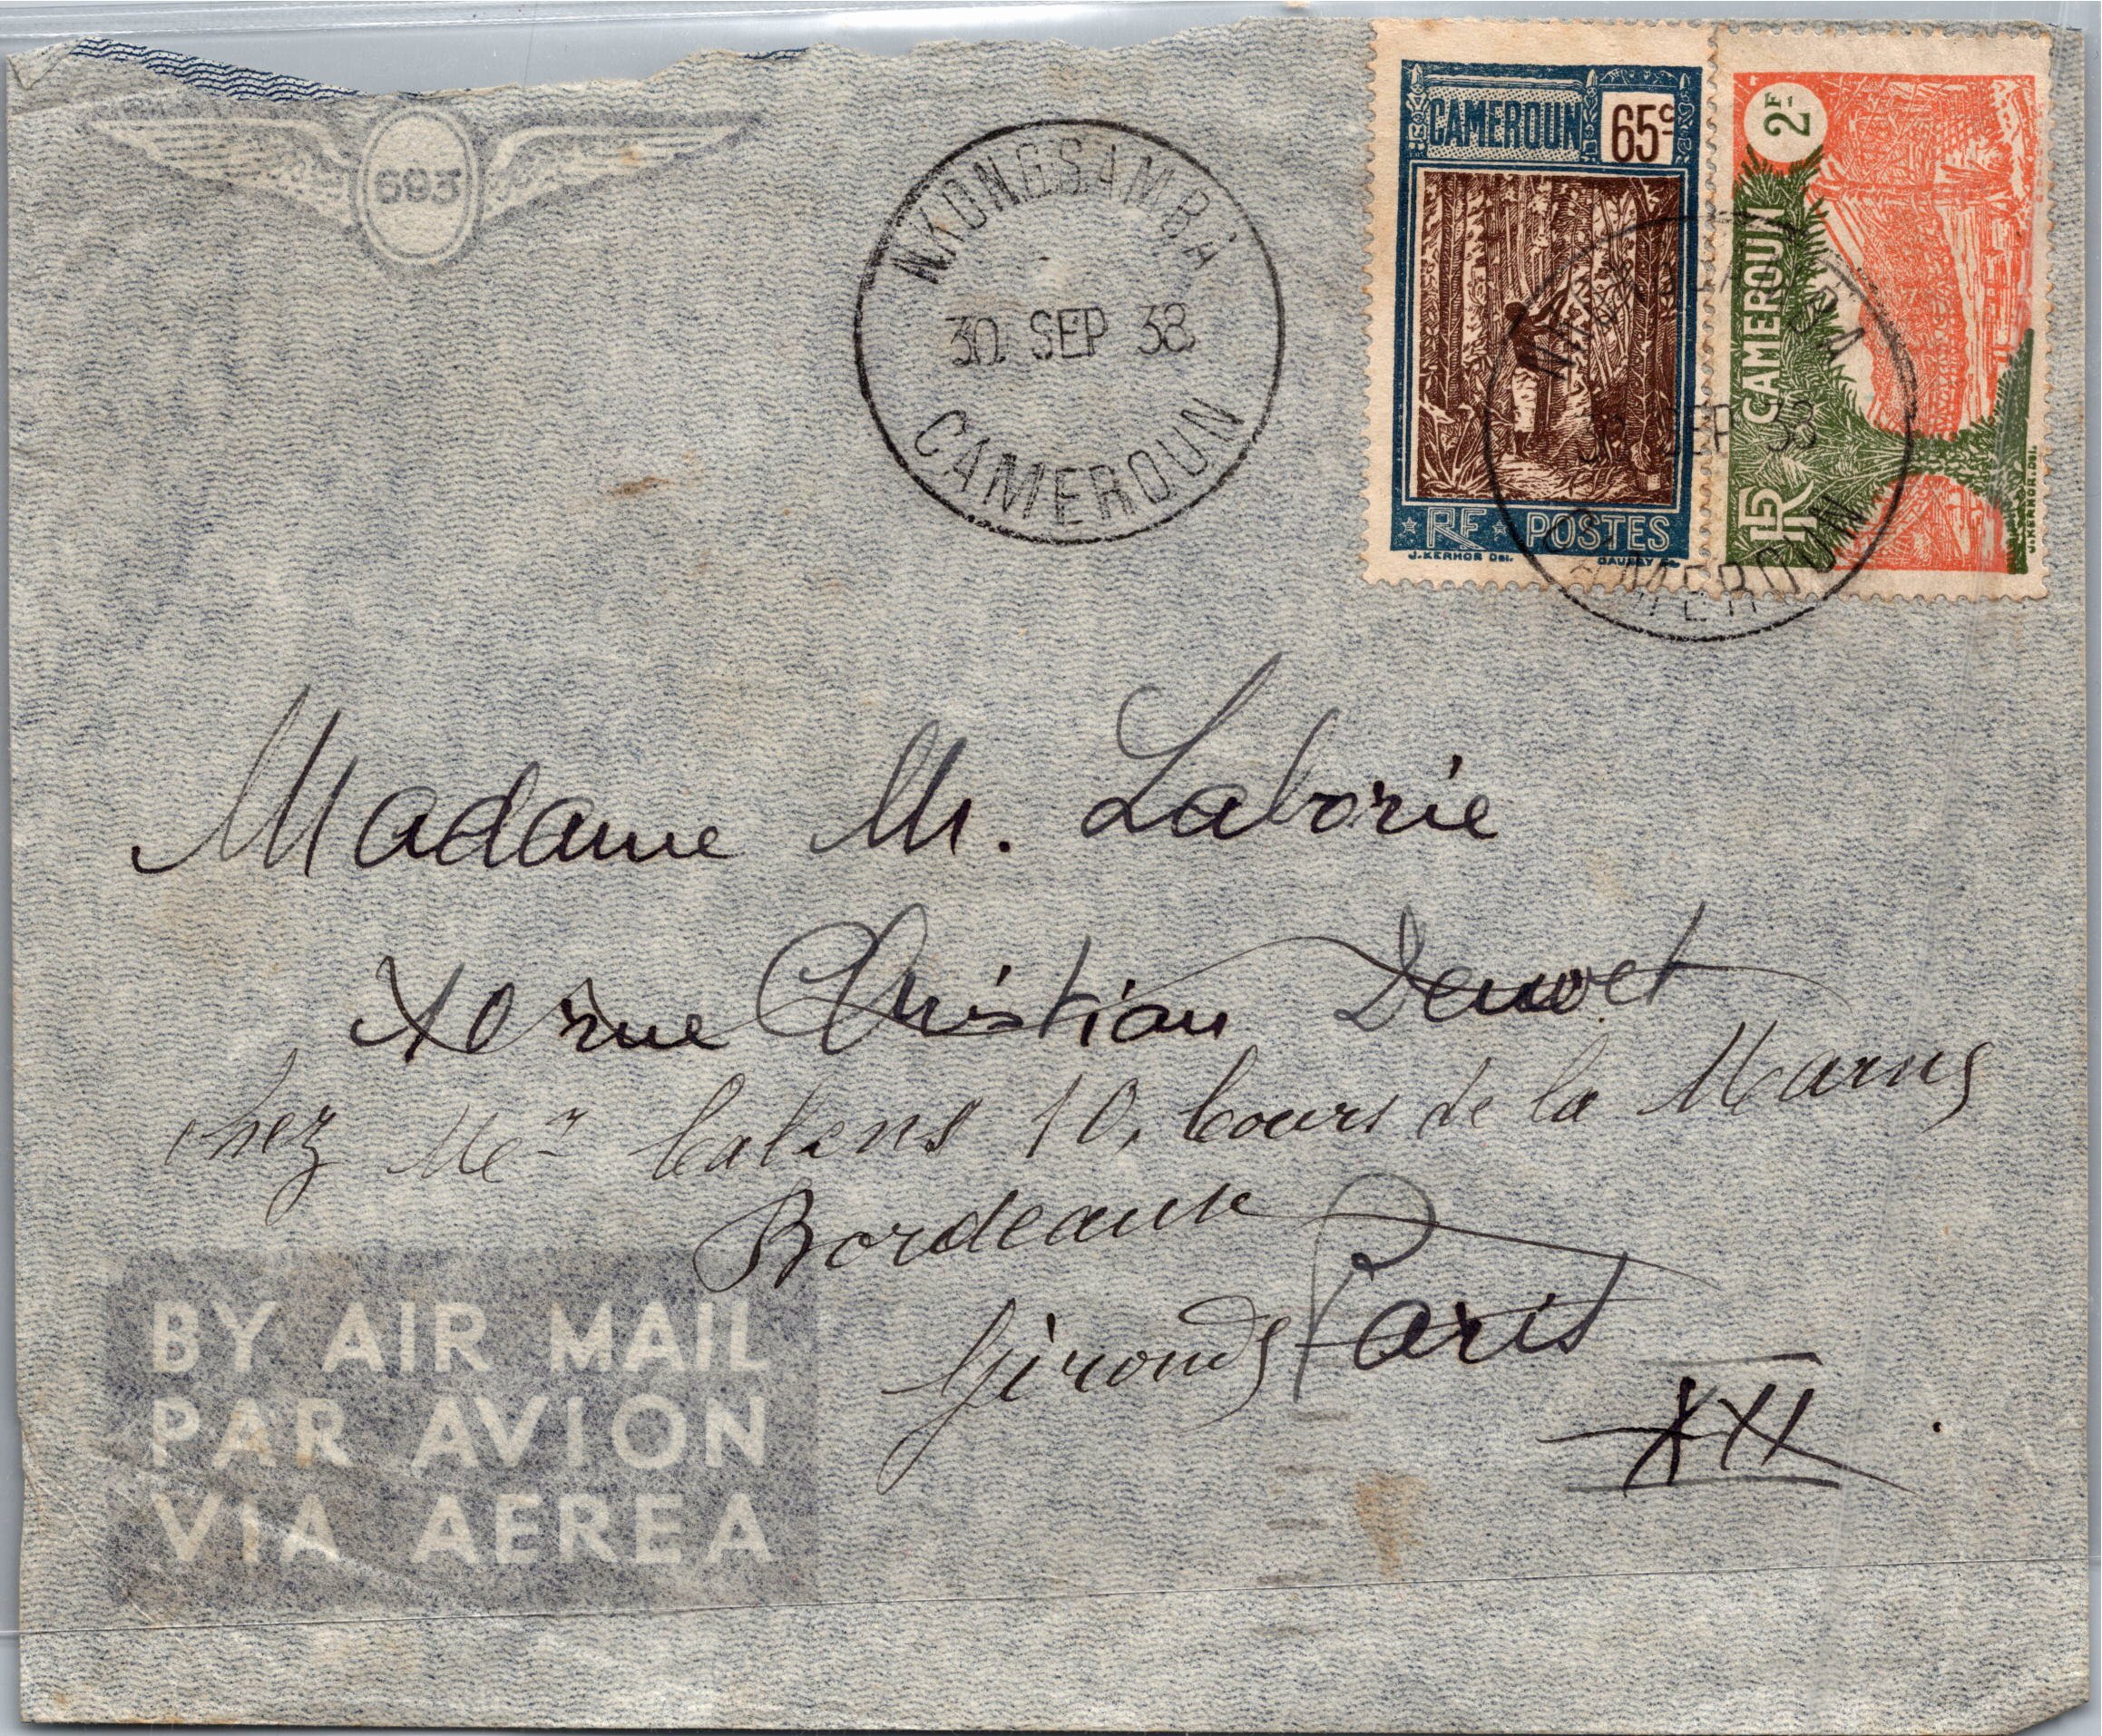 693
NKONGSAMBA
30 SEP 38
CAMEROUN
CAMEROUN 65c
RF POSTES
J. KERHOR DEL.
2F
CAMEROUN
RF
J. KERHOR. DEL.
NKONGSAMBA
30 SEP 38
CAMEROUN
Madame M. Laborie
10 rue Christian Dewet
chez Me 10, Cours de la Marne
Bordeaux
Gironde Paris
XII
BY AIR MAIL
PAR AVION
VIA AEREA